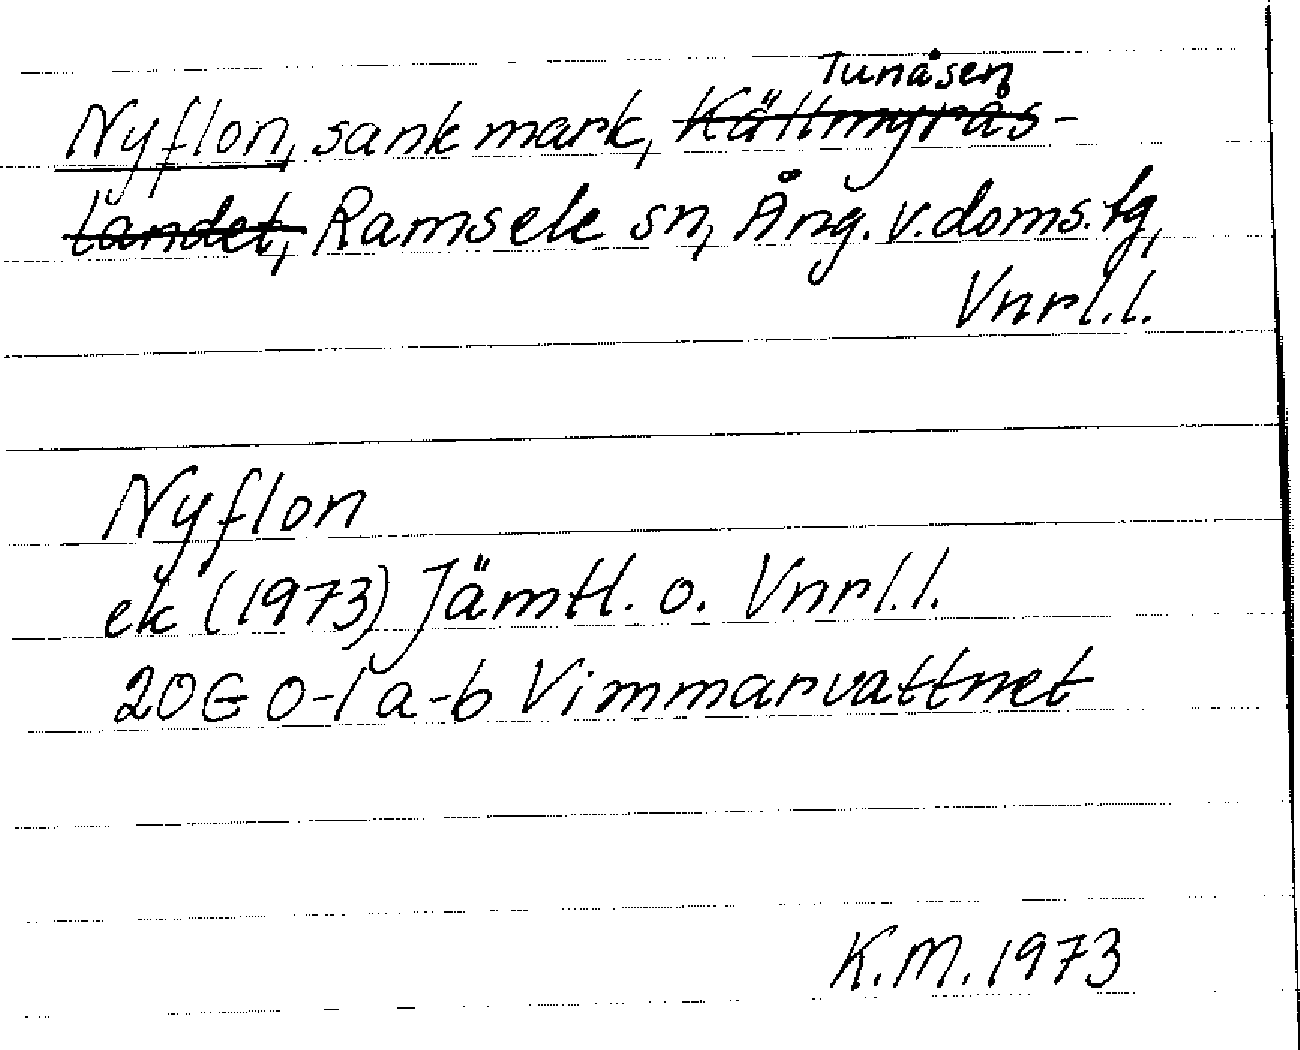 Tunåsen
Nyflon, sank mark, Källmyrås-
landet, Ramsele sn, Ång. v. doms. tg,
Vnrl.l.
Nyflon
ek (1973) Jämtl. o. Vnrl.l.
20G 0-1 a-b Vimmarvattnet
K.M. 1973